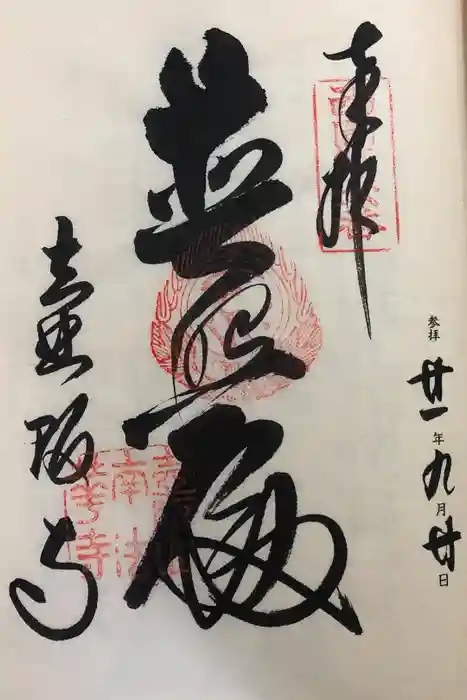 奉拝
参拝 廿一年九月廿日
普照殿
壷阪寺
南法
華寺